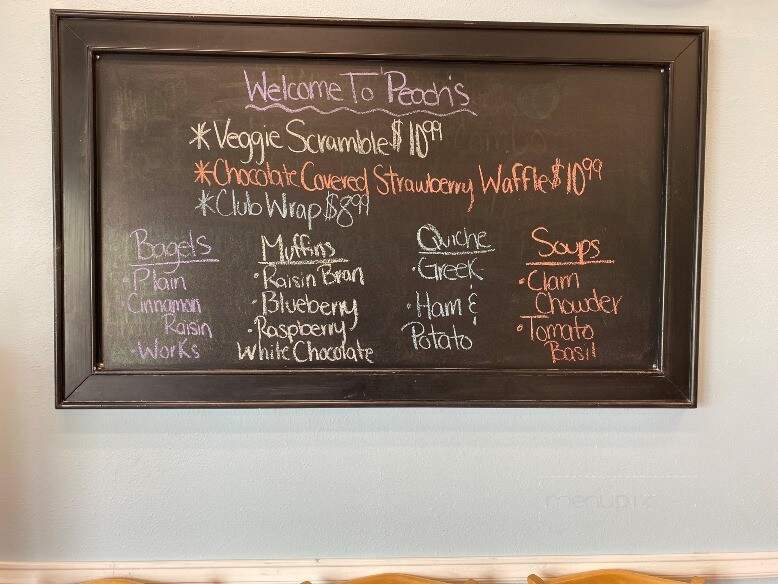 Welcome To Peach's
*Veggie Scramble $10.99
*Chocolate Covered Strawberry Waffle $10.99
*Club Wrap $8.99
Bagels
·Plain
·Cinnamon
Raisin
·Works
Muffins
·Raisin Bran
·Blueberry
·Raspberry
White Chocolate
Quiche
·Greek
·Ham &
Potato
Soups
·Clam
Chowder
·Tomato
Basil